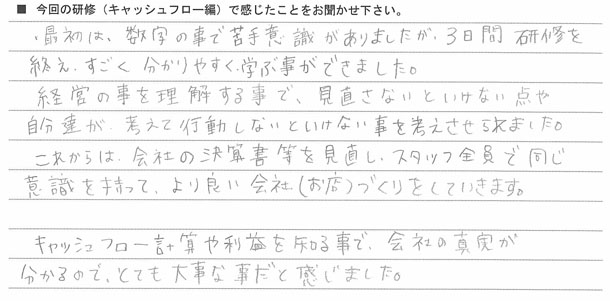 ■ 今回の研修（キャッシュフロー編）で感じたことをお聞かせ下さい。
・最初は、数字の事で苦手意識がありましたが、3日間研修を
終え、すごく分かりやすく学ぶ事ができました。
経営の事を理解する事で、見直さないといけない点や
自分達が、考えて行動しないといけない事を考えさせられました。
これからは、会社の決算書等を見直し、スタッフ全員で同じ
意識を持って、より良い会社（お店）づくりをしていきます。
キャッシュフロー計算や利益を知る事で、会社の真実が
分かるので、とても大事な事だと感じました。